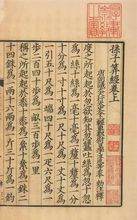 孫子算經卷上
度之所起起於忽欲知其忽蠶吐絲爲忽十
忽爲一絲十絲爲一毫十毫爲一氂十氂爲
一分十分爲一寸十寸爲一尺十尺爲一丈
十丈爲一引五十尺爲一端四十尺爲一疋六尺爲一
步二百四十步爲一畝三百步爲一里
稱之所起起於黍十黍爲一絫十絫爲一銖二
十四銖爲一兩十六兩爲一斤三十斤爲一